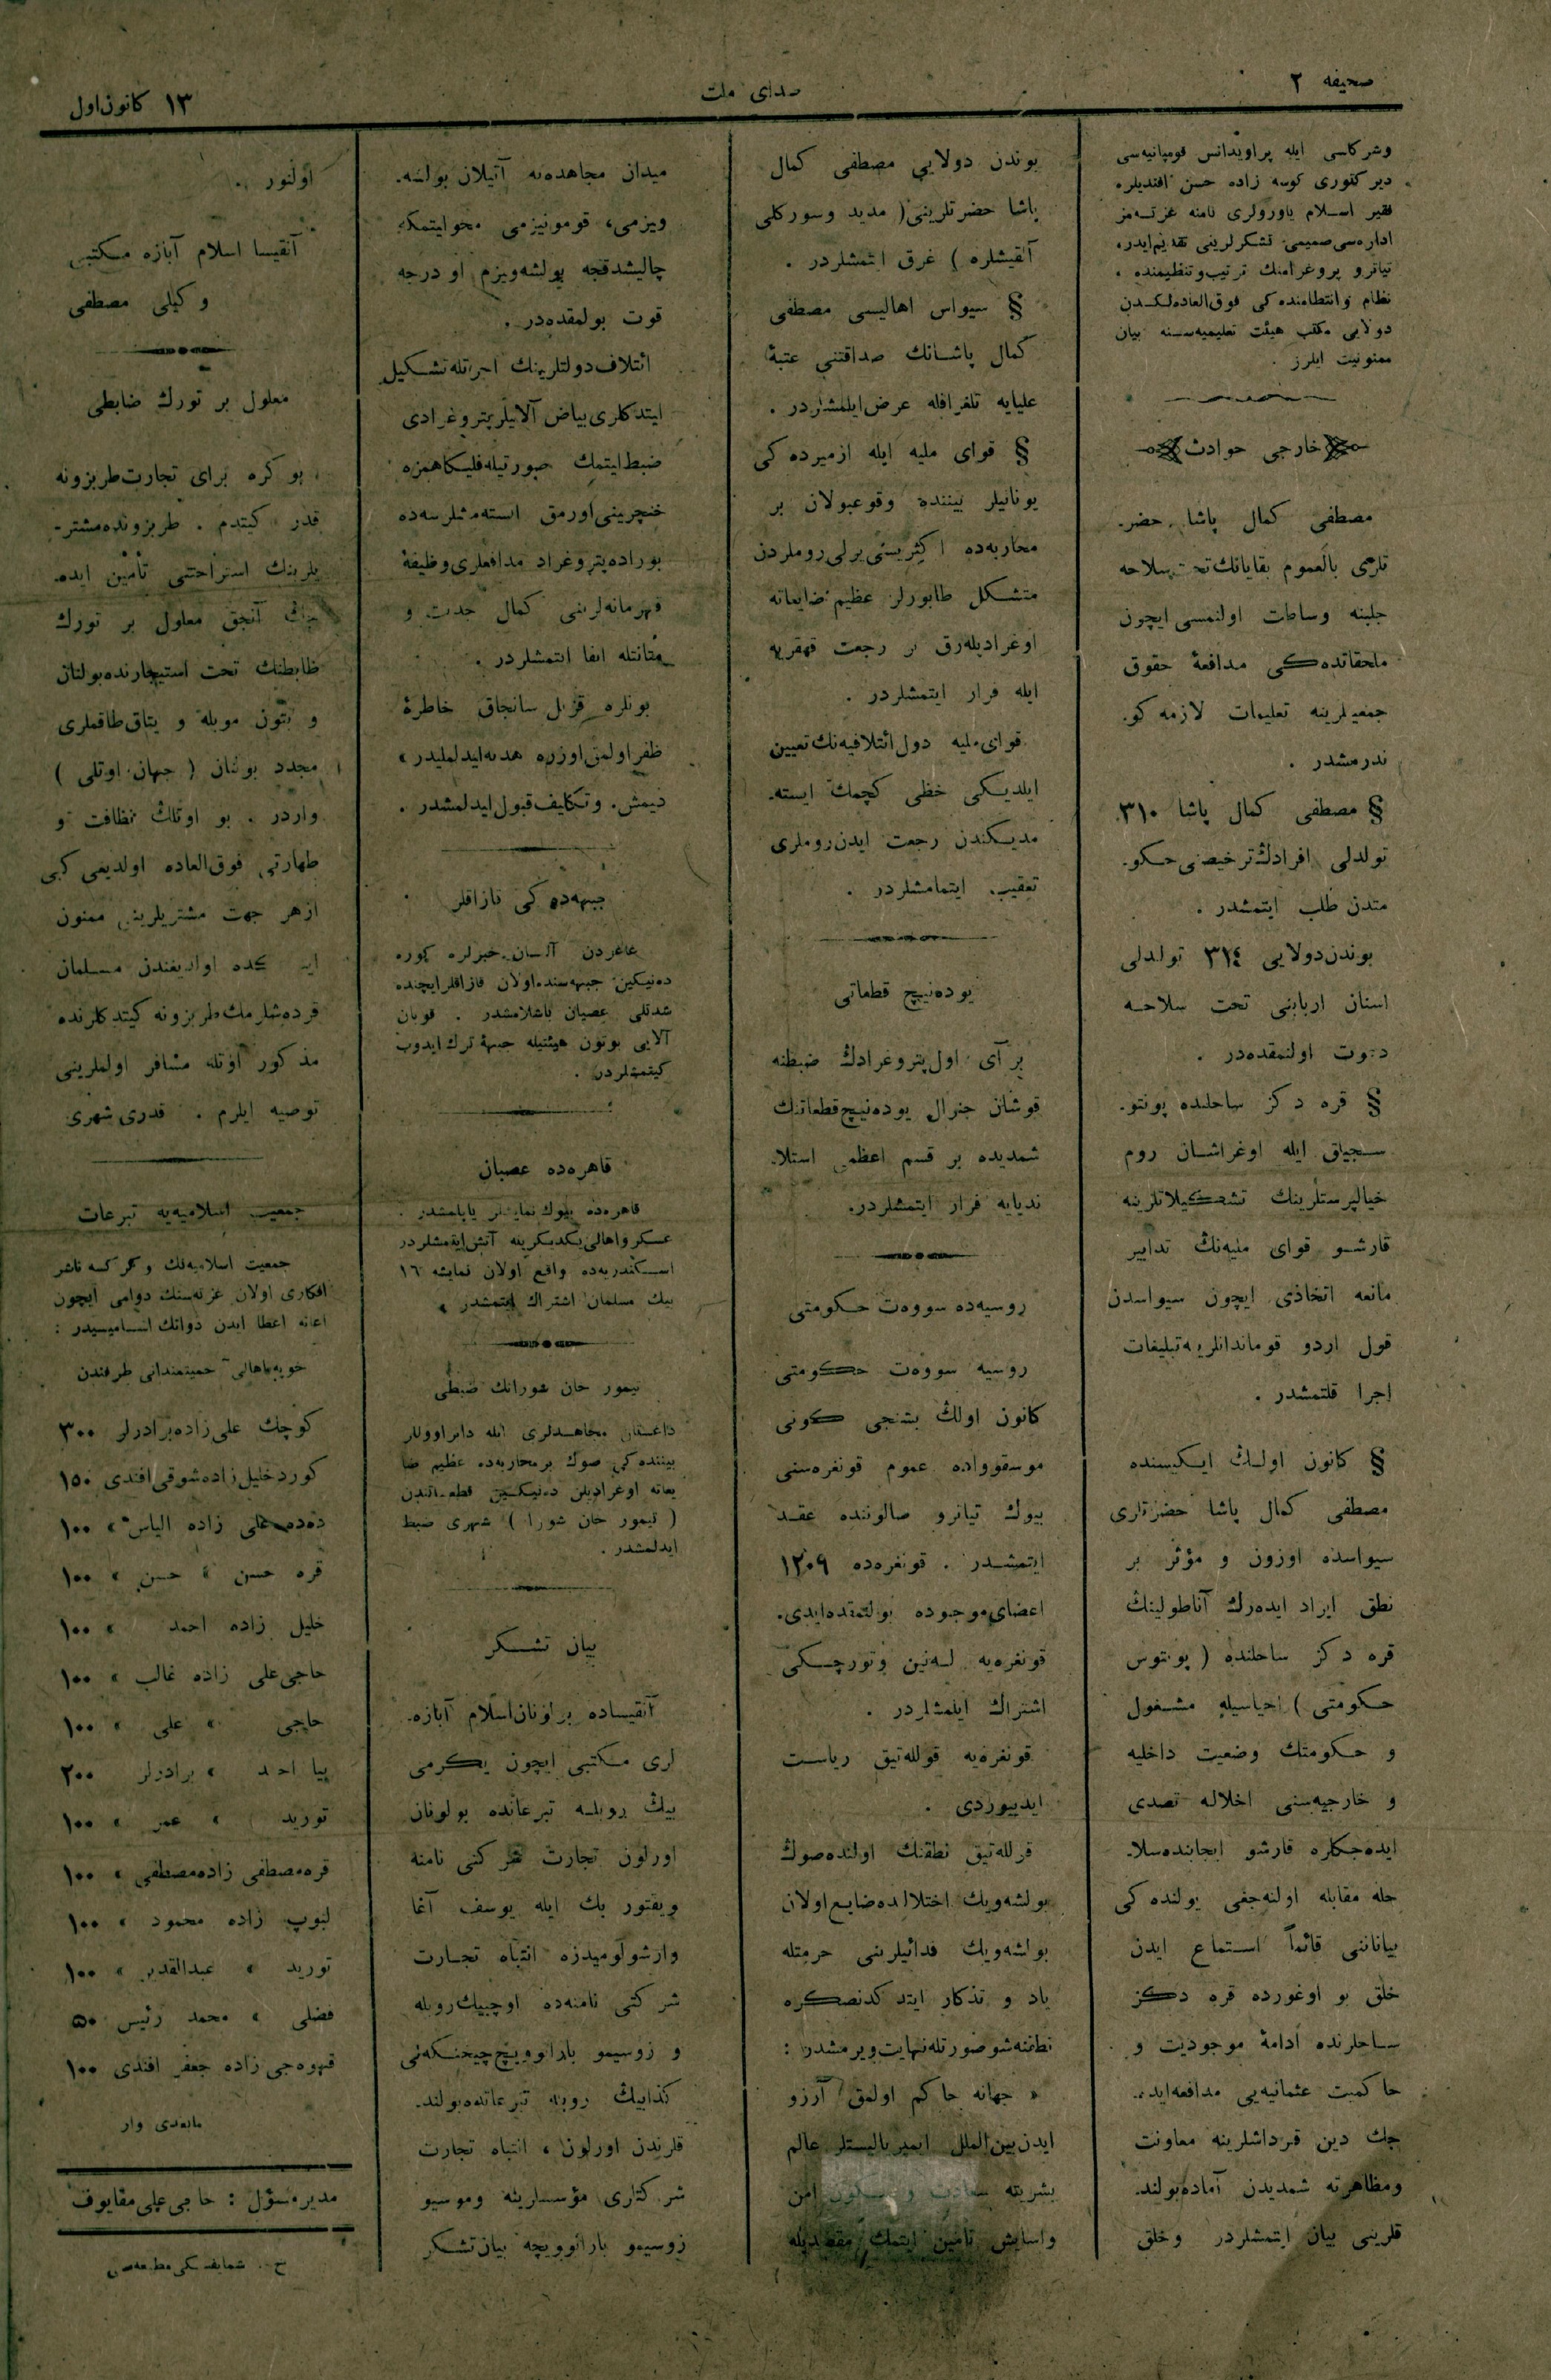 صحیفه ٢
صدای ملت
١٣ كانون اول
وشركاسی ایله پراویدانس قومپانیه‌سی
دیركتوری كوسه زاده حسن افندیلره
فقیر اسلام یاورولری نامنه غزته‌مز
اداره‌سی صمیمی تشكرلرینی تقدیم ایدر،
تیاترو پروغرامنك ترتیب و تنظیمنده ،
نظام و انتظامنده كی فوق العاده‌لكدن
دولایی مكتب هیئت تعلیمیه‌سنه بیان
ممنونیت ایلرز .
خارجی حوادث
مصطفی كمال پاشا حضر-
تلری بالعموم بقایانك تحت سلاحه
جلبنه وساطت اولنمسی ایچون
ملحقاتده‌كی مدافعهٔ حقوق
جمعیلرینه تعلیمات لازمه كو-
ندرمشدر .
§ مصطفی كمال پاشا ٣١٠
تولدلی افرادك ترخیصنی حكو-
متدن طلب ایتمشدر .
بوندن دولایی ٣١٤ تولدلی
اسنان اربابنی تحت سلاحه
دعوت اولنمقده‌در .
§ قره دكز ساحلنده پونتو-
سجیلق ایله اوغراشان روم
خیالپرستلرینك تشكیلاتلرینه
قارشو قوای ملیه‌نك تدابیر
مانعه اتخاذی ایچون سیواسدن
قول اردو قوماندانلریه تبلیغات
اجرا قلتمشدر .
§ كانون اولك ایكیسنده
مصطفی كمال پاشا حضرتلری
سیواسده اوزون و مؤثر بر
نطق ایراد ایده‌رك آناطولینك
قره دكز ساحلنده ( پونتوس
حكومتی ) احیاسیله مشغول
و حكومتك وضعیت داخلیه
و خارجیه‌سنی اخلاله تصدی
ایده‌جكلره قارشو ایجابنده سلا-
حله مقابله اولنه‌جغی یولنده كی
بیاناتنی قائماً استماع ایدن
خلق بو اوغورده قره دكز
ساحلرنده ادامهٔ موجودیت و
حاكمیت عثمانیه‌یی مدافعه ایده-
جك دین قرداشلرینه معاونت
ومظاهرته شمدیدن آماده بولند-
قلرینی بیان ایتمشلردر وخلق
بوندن دولایی مصطفی كمال
پاشا حضرتلرینی ( مدید وسوركلی
آلقیشلره ) غرق ایتمشلردر .
§ سیواس اهالیسی مصطفی
كمال پاشانك صداقتنی عتبهٔ
علیایه تلغرافله عرض ایلمشلردر .
§ قوای ملیه ایله ازمیرده كی
یونانیلر بیننده وقوعبولان بر
محاربه‌ده اكثریسی یرلی روملردن
متشكل طابورلر عظیم ضایعاته
اوغرادیله‌رق بر رجعت قهقریه
ایله فرار ایتمشلردر .
قوای ملیه دول ائتلافیه‌نك تعیین
ایلدیكی خطی كچمك ایسته-
مدیكندن رجعت ایدن روملری
تعقیب ایتمامشلردر .
یوده‌نیچ قطعاتی
بر آی اول پتروغرادك ضبطنه
قوشان جنرال یوده‌نیچ قطعاتنك
شمدیده بر قسم اعظمی استلا-
ندیایه فرار ایتمشلردر.
روسیه‌ده سووه‌ت حكومتی
روسیه سووه‌ت حكومتی
كانون اولك بشنجی كونی
موسقوواده عموم قونغره‌سنی
بیوك تیاترو صالوننده عقد
ایتمشدر . قونغره‌ده ١٢٠٩
اعضای موجوده بولنمقده ایدی.
قونغره‌یه له‌نین وتورچسكی
اشتراك ایلمشلردر .
قونغره‌یه قولله‌تیق ریاست
ایدییوردی .
قولله‌تیق نطقنك اولنده صوك
بولشه‌ویك اختلالده ضایع اولان
بولشه‌ویك فدائیلرینی حرمتله
یاد و تذكار ایتدكدنصكره
نطقنه شو صورتله نهایت ویرمشدر :
« جهانه حاكم اولمق آرزو
ایدن بین الملل ایمپریالیستلر عالم
بشریته سعادت و سكون امن
واسایش تأمین ایتمك مقصدیله
میدان مجاهده‌یه آتیلان بولشه-
ویزمی، قومونیزمی محو ایتمكه
چالیشدقجه بولشه‌ویزم او درجه
قوت بولمقده‌در .
ائتلاف دولتلرینك اجرتله تشكیل
ایتدكلری بیاض آلایلر پتروغرادی
ضبط ایتمك صورتیله فلیكاهمزه
خنچرینی اورمق ایسته‌مشلرسه‌ده
بوراده پتروغراد مدافعلری وظیفهٔ
قهرمانه‌لرینی كمال جدیت و
متانتله ایفا ایتمشلردر .
بونلره قزل سانجاق خاطرهٔ
ظفر اولمق اوزره هدیه ایدلملیدر »
دیمش. وتكلیف قبول ایدلمشدر .
جبهه‌ده كی قازاقلر
غاغردن آلنان خبرلره كوره
ده‌نیكین جبهه‌سنده اولان قازاقلر ایچنده
شدتلی عصیان باشلامشدر . قوبان
آلایی بوتون هیئتیله جبههٔ ترك ایدوب
كیتمشلردر .
قاهره‌ده عصیان
قاهره‌ده بیوك نمایشلر یاپلمشدر .
عسكر واهالی یكدیكرینه آتش ایتمشلردر
اسكندریه‌ده واقع اولان نمایشه ١٦
بیك مسلمان اشتراك ایتمشدر .
تیمور خان شورانك ضبطی
داغستان مجاهدلری ایله دابراووللر
بیننده كی صوك بر محاربه‌ده عظیم ضا
یعاته اوغرادیلن ده‌نیكین قطعاتندن
( تیمور خان شورا ) شهری ضبط
ایدلمشدر .
بیان تشكر
آنقیساده براونان اسلام آبازه-
لری مكتبی ایچون یكرمی
بیك روبله تبرعاتده بولونان
اورلون تجارت شركتی نامنه
ویقتور بك ایله یوسف آغا
وارشولومیدزه انتباه تجارت
شركتی نامنه‌ده اوچبیك روبله
و زوسیمو بارانوویچ چیچنكه‌نی
كذابیك روبله تبرعاتده بولند-
قلرندن اورلون ، انتباه تجارت
شركتلری مؤسسلرینه وموسیو
زوسیمو بارانوویچه بیان تشكر
اولنور .
آنقیسا اسلام آبازه مكتبی
وكیلی مصطفی
معلول بر تورك ضابطی
بو كره برای تجارت طربزونه
قدر كیتدم . طربزونده مشتر-
یلرینك استراحتنی تأمین ایده-
آنجق معلول بر تورك
ظابطنك تحت استیجارنده بولنان
و بتون موبله و یتاق طاقملری
مجدد بولنان ( جهان اوتلی )
واردر . بو اوتلك نظافت و
طهارتی فوق العاده اولدیغی كبی
ازهر جهت مشتریلرینی ممنون
ایتمكده اولدیغندن مسلمان
قرده‌شلرمك طربزونه كیتدكلرنده
مذكور اوتله مسافر اولملرینی
توصیه ایلرم . قدری شهری
جمعیت اسلامیه‌یه تبرعات
جمعیت اسلامیه‌نك ناشر
افكاری اولان غزته‌سنك دوامی ایچون
اعانه اعطا ایدن ذواتك اسامیسیدر :
خوپه اهالی حمیتمندانی طرفندن
كوچك علی زاده برادرلر ٣٠٠
كورد خلیل زاده شوقی افندی ١٥٠
دده علی زاده الیاس » ١٠٠
قره حسن » حسن » ١٠٠
خلیل زاده احمد » ١٠٠
حاجی علی زاده غالب » ١٠٠
حاجی » علی » ١٠٠
پیا احمد » برادرلر ٢٠٠
تورید » عمر » ١٠٠
قره مصطفی زاده مصطفی » ١٠٠
لبوپ زاده محمود » ١٠٠
تورید » عبدالقدیر » ١٠٠
فضلی » محمد رئیس ٥٠
قهوه‌جی زاده جعفر افندی ١٠٠
مابعدی وار
مدیر مسؤل : حاجی علی مقایوف